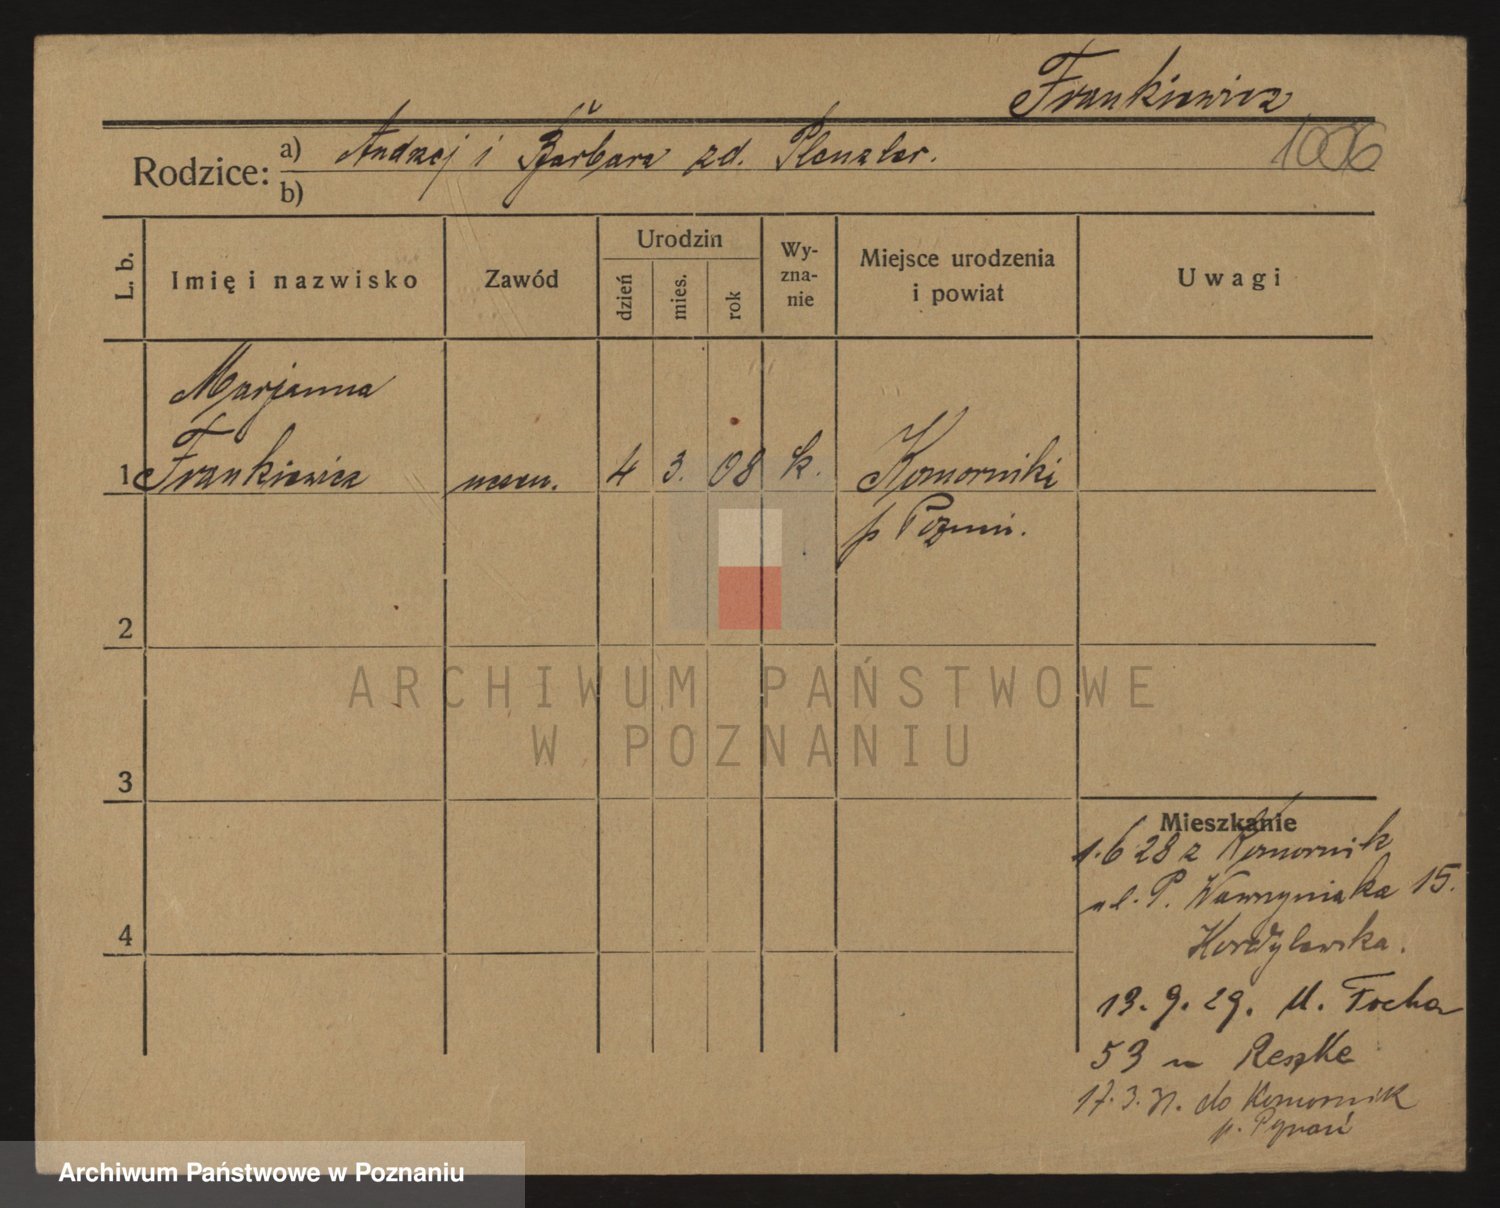 Frankiewicz
1006
Rodzice: a) Andrzej i Barbara zd. Plenzler.
b)
L. b.
Imię i nazwisko
Zawód
Urodzin
dzień
mies.
rok
Wy-
zna-
nie
Miejsce urodzenia
i powiat
Uwagi
Marjanna
1 Frankiewicz 4 3. 08 k. Komorniki
p Poznań.
2
ARCHIWUM PAŃSTWOWE
W POZNANIU
3
Mieszkanie
1.6 28 z Komornik
ul. P. Wawrzyniaka 15.
Kordylewska.
19. 9. 29. M. Focha
53 u Reszke
17. 3. 31. do Komornik
p. Poznań
4
Archiwum Państwowe w Poznaniu